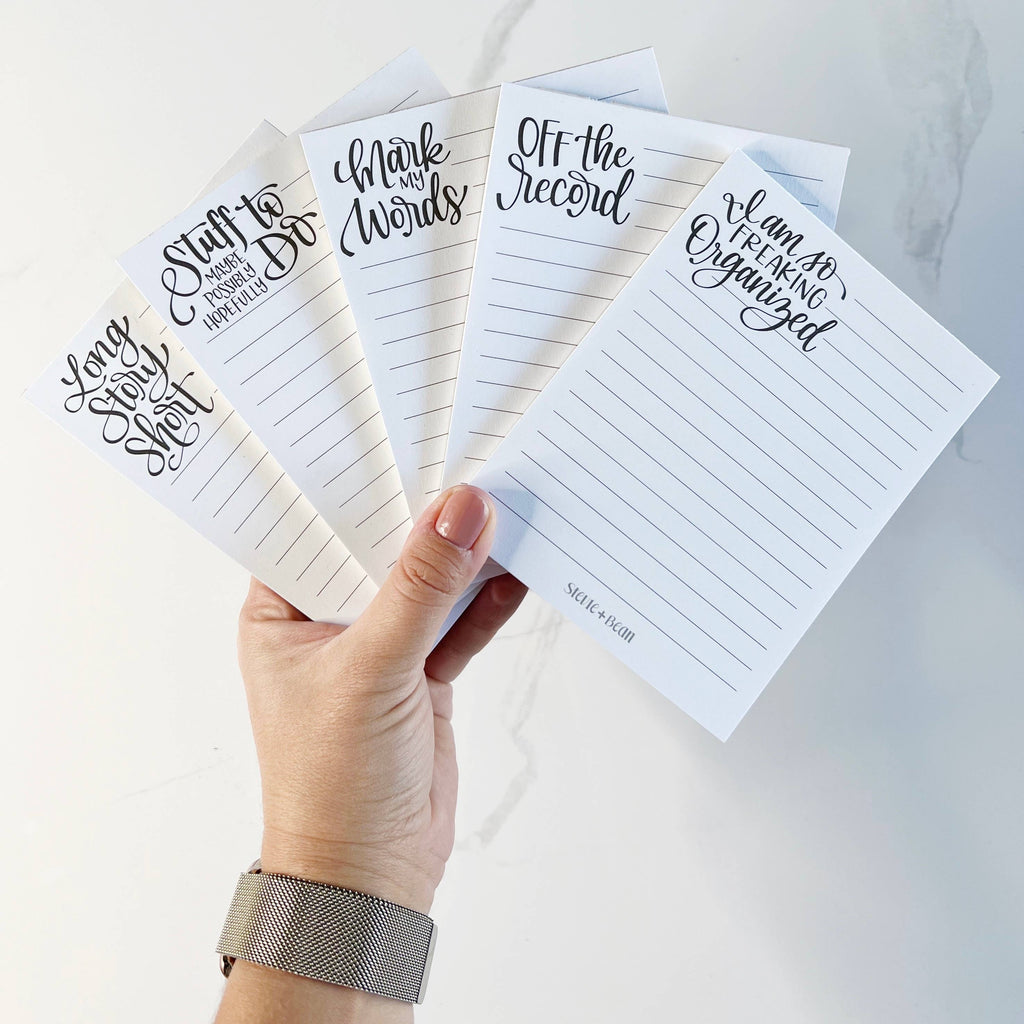 Long
Story
Short
Stuff to
Do
MAYBE
POSSIBLY
HOPEFULLY
Mark
MY
Words
OFF the
record
I am so
FREAKING
Organized
Stevie+Bean